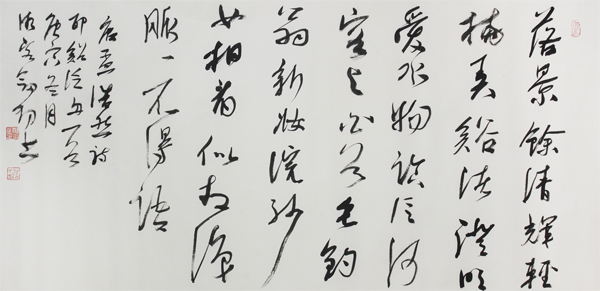 落景餘清輝輕
橈弄谿渚澄明
愛水物臨泛何
容與白首垂釣
翁新妝浣紗
女相看似相識
脈〻不得語
唐孟浩然詩
耶谿泛舟一首
庚寅 月